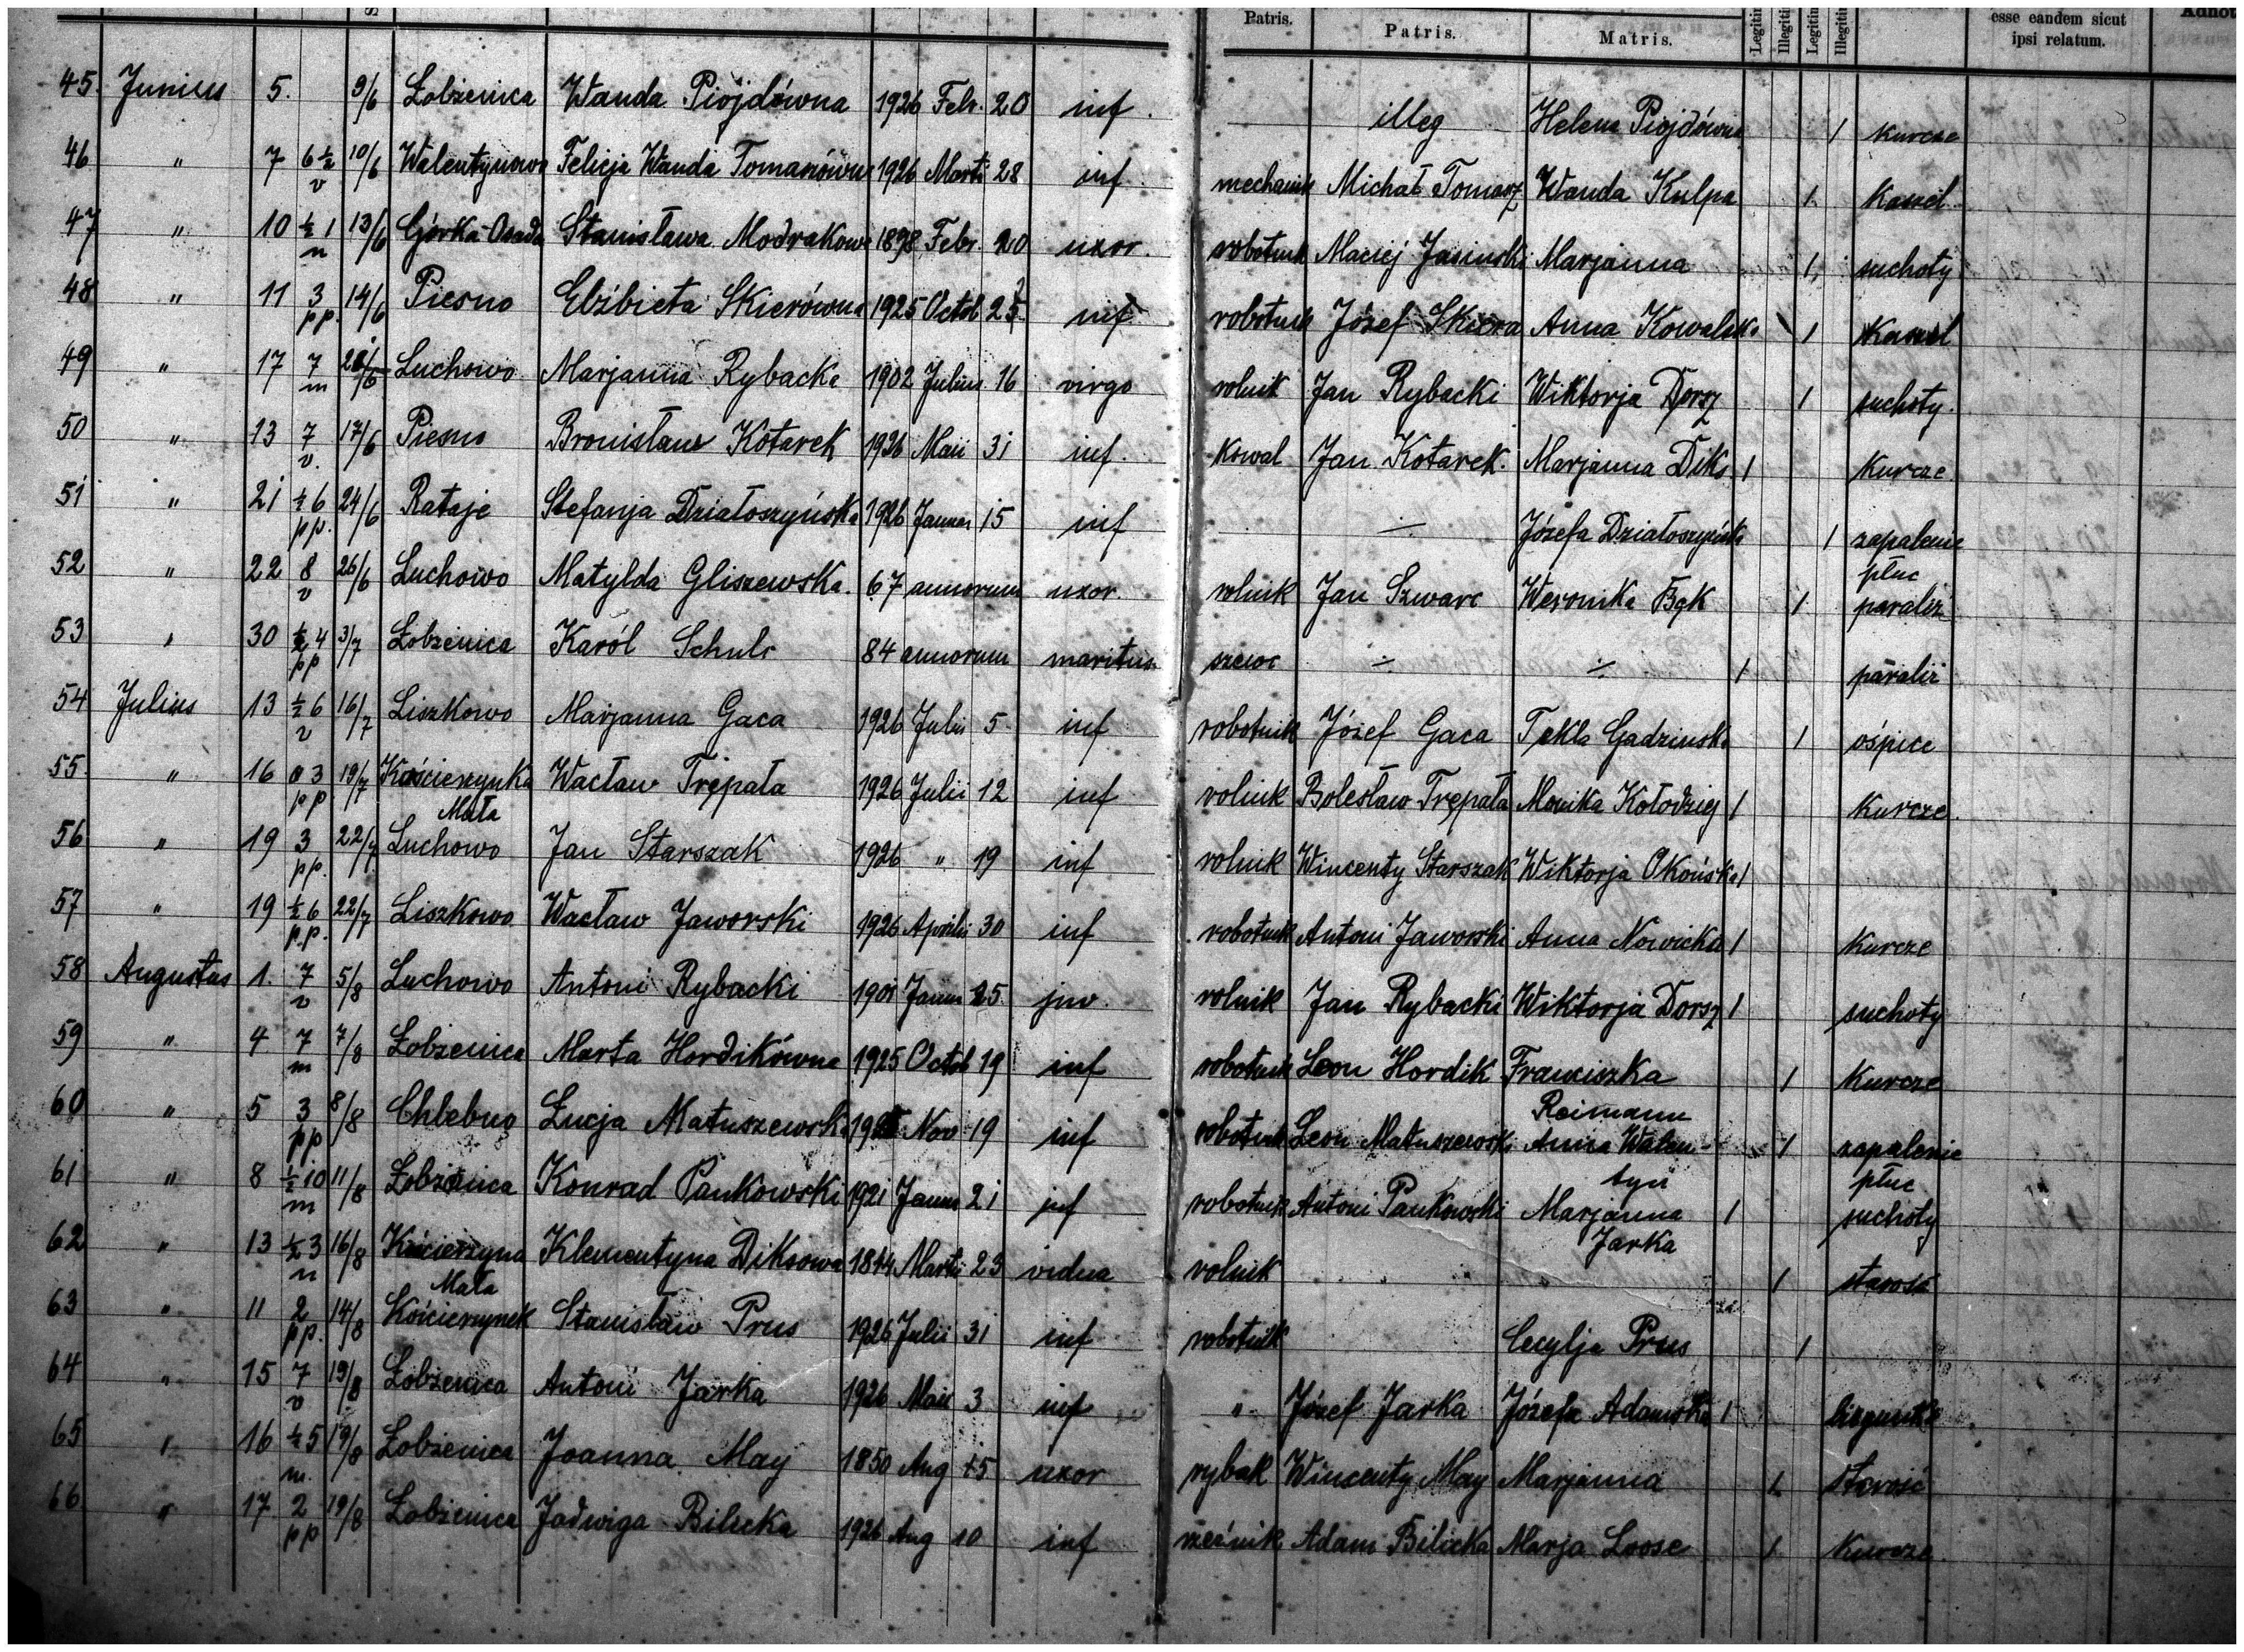 Patris. Patris. Matris. Legitin Illegitin Legitin Illegitin esse eandem sicut ipsi relatum. Adnot
45. Junius 5. 9/6 Łobżenica Wanda Piojdówna 1926 Febr. 20 inf. illeg Helena Piojdówna 1 Kurcze
46 " 7 6½ v 10/6 Walentynowo Felicja Wanda Tomaszówna 1926 Martii 28 inf. mechanik Michał Tomasz Wanda Kulpa 1. Kaszel
47 " 10 ½ 1 n 13/6 Górka-Osada Stanisława Modrakowa 1898 Febr. 20 uxor. robotnik Maciej Jasinski Marjanna 1. suchoty
48 " 11 3 pp. 14/6 Piesno Elżbieta Skierówna 1925 Octob inf robotnik Józef Skiera Anna Kowalska 1 Kaszel
49 " 17 7 m Luchowo Marjanna Rybacka 1902 Julius 16 virgo rolnik Jan Rybacki Wiktorja Dorsz 1 suchoty.
50 " 13 7 v. 17/6 Piesno Bronisław Kotarek 1926 Maii 31 inf. Kowal Jan Kotarek. Marjanna Diks 1 Kurcze
51 " 21 ½ 6 pp. 24/6 Rataje Stefanja Działoszyńska 1926 Januar 15 inf ÷ Józefa Działoszyńska 1 zapalenie
płuc
52 " 22 8 v 26/6 Luchowo Matylda Gliszewska. 67 annorum uxor. rolnik Jan Szwarc Weronika Bąk 1. paraliż
53 " 30 ½ 4 pp 3/7 Łobżenica Karól Schulz 84 annorum maritus szewc ÷ ÷ 1 paraliż
54 Julius 13 ½ 6 v 16/7 Liszkowo Marjanna Gaca 1926 Julii 5 inf robotnik Józef Gaca Tekla Gadzinska 1 ośpice
55. " 16 3 pp. 19/7 Kościerzynka Wacław Trępała 1926 Julii 12 inf rolnik Bolesław Trępała Monika Kołodziej 1 Kurcze.
Mała
56 " 19 3 pp. 22/7 Luchowo Jan Starszak 1926 " 19 inf rolnik Wincenty Starszak Wiktorja Okońska 1
57 " 19 ½ 6 p.p. 22/7 Liszkowo Wacław Jaworski 1926 Aprilis 30 inf robotnik Antoni Jaworski Anna Nowicka 1 Kurcze
58 Augustus 1. 7 v 5/8 Luchowo Antoni Rybacki 1901 Januar 25 juv. rolnik Jan Rybacki Wiktorja Dorsz 1 suchoty
59 " 4 7 m 7/8 Łobżenica Marta Hordikówna 1925 Octob 19 inf robotnik Leon Hordik Franciszka 1 Kurcze
Reimann
60 " 5 3 pp 8/8 Chlebno Łucja Matuszewska Nov 19 inf robotnik Leon Matuszewski Anna Walen- 1 zapalenie
tyn płuc
61 " 8 ½ 10 m 11/8 Łobżenica Konrad Pankowski 1921 Januar 21 inf robotnik Antoni Pankowski Marjanna 1 suchoty
Jarka
62 " 13 ½ 3 n 16/8 Kościerzyna Klementyna Diksowa Martii 23 vidua rolnik 1 starość
Mała
63 " 11 2 pp. 14/8 Kościerzynek Stanisław Prus 1926 Julii 31 inf robotnik Cecylja Prus 1
64 " 15 7 v 19/8 Łobżenica Antoni Jarka 1926 Maii 3 inf " Józef Jarka Józefa Adamska 1 biegunka
65 " 16 ½ 5 m. 19/8 Łobżenica Joanna May 1850 Aug 15 uxor rybak Wincenty May Marjanna 1. starość
66 " 17 2 pp 19/8 Łobżenica Jadwiga Bilicka 1926 Aug 10 inf rzeźnik Adam Bilicka Marja Loose 1 Kurcze